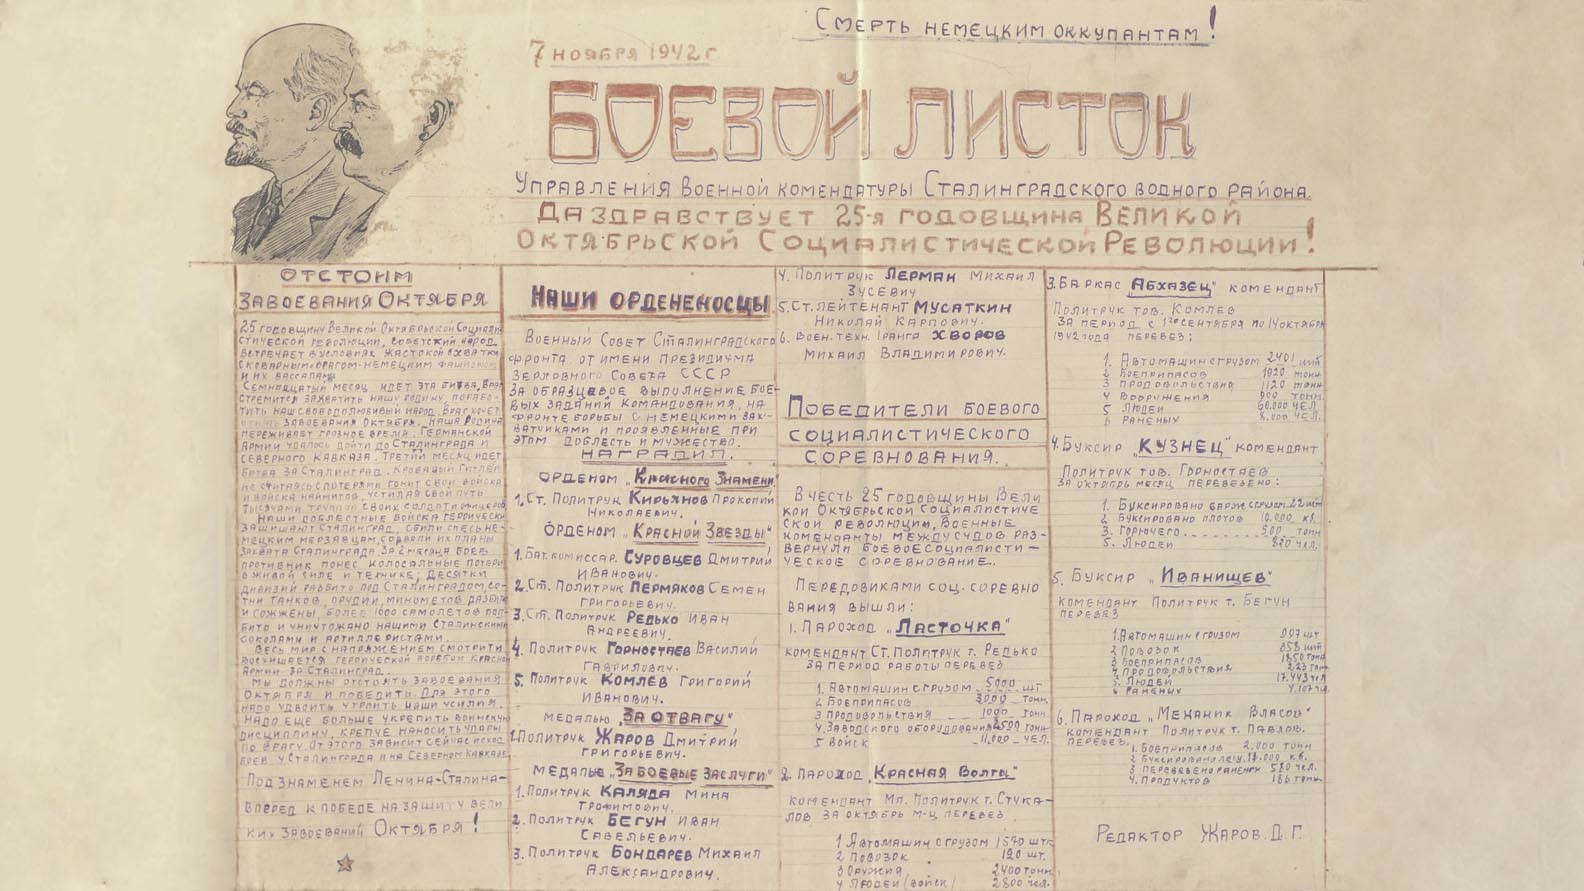 Смерть немецким оккупантам!
7 ноября 1942 г
БОЕВОЙ ЛИСТОК
Управления Военной комендатуры Сталинградского водного района.
Да здравствует 25-я годовщина Великой
Октябрьской Социалистической Революции!
ОТСТОИМ
ЗАВОЕВАНИЯ ОКТЯБРЯ
25 годовщину Великой Октябрьской Социали-
стической революции, советский народ
встречает в условиях жастокой схватки
с коварным врагом-немецким фашизмом
и их вассалами
Семнадцатый месяц идет эта битва, Враг
стремится захватить нашу родину, порабо-
тить наш свободолюбивый народ. Враг хочет
завоевания Октября. Наша Родина
переживает грозное время. Германской
армии удалось дойти до Сталинграда и
Северного Кавказа. Третий месяц идет
битва за Сталинград. Кровавый Гитлер
не считаясь с потерями гонит свои войска
и войска наймитов, устилая свой путь
тысячами трупов своих солдат и офицеров
Наши доблестные войска героически
защищают Сталинград, сбили спесь не-
мецким мерзавцам, сорвали их планы
захвата Сталинграда. За 2 месяца боев
противник понес колосальные потери
в живой силе и технике; Десятки
дивизий разбито под Сталинградом, со-
тни танков, орудий, минометов разбито
и сожжены, более 1000 самолетов под-
бито и уничтожено нашими сталинскими
соколами и артиллеристами.
Весь мир с напряжением смотрит и
восхищается героической борьбой Красной
Армии за Сталинград.
Мы должны отстоять завоевания
Октября и победить. Для этого
надо удвоить утроить наши усилия.
Надо еще больше укрепить воинскую
дисциплину, крепче наносить удары
по врагу. От этого зависит сейчас исход
боев у Сталинграда и на Северном Кавказе
Под знаменем Ленина-Сталина-
вперед к победе на защиту вели
ких завоеваний Октября!
Наши орденeносцы
Военный Совет Сталинградского
фронта от имени Президиума
Верховного Совета СССР
за образцовое выполнение бое-
вых заданий командования, на
фронте борьбы с немецкими зах-
ватчиками и проявленные при
этом доблесть и мужество.
НАГРАДИЛ.
орденом „Красного Знамени"
1. Ст. Политрук Кирьянов Прокопий
Николаевич.
орденом „Красной Звезды"
1. Бат. комиссар. Суровцев Дмитрий
Иванович.
2. Ст. Политрук Пермяков Семен
Григорьевич.
3. Ст. Политрук Редько Иван
Андреевич.
4. Политрук Горностаев Василий
Гаврилович.
5. Политрук Комлев Григорий
Иванович.
медалью „За отвагу"
1. Политрук Жаров Дмитрий
Григорьевич.
медалье „За боевые заслуги"
1. Политрук Каляда Мина
Трофимович.
2. Политрук Бегун Иван
Савельевич.
3. Политрук Бондарев Михаил
Александрович.
4. Политрук Лерман Михаил
Зусевич
5. Ст. лейтенант Мусаткин
Николай Карпович.
6. Воен. техн. I ранга Хворов
Михаил Владимирович.
Победители боевого
социалистического
соревнования.
В честь 25 годовщины Вели
кой Октябрьской Социалистиче
ской революции, военные
коменданты между судов раз-
вернули боевое социалисти-
ческое соревнование.
Передовиками соц. соревно
вания вышли:
1. Пароход „Ласточка"
комендант Ст. Политрук т. Редько
за период работы перевез
1. Автомашин с грузом 5000 шт
2. Боеприпасов 3000 тонн
3 Продовольствия 1000 тонн
4. Заводского оборудования 2500 тонн
5 Войск 11,000 чел.
2. Пароход „Красная Волга"
комендант Мл. Политрук т. Стука-
лов за октябрь м-ц перевез
1 Автомашин с грузом 1570 штк
2 Повозок 120 шт.
3 Оружия 2400 тонн
4 Людей (войск) 2800 чел.
3. Баркас „Абхазец" комендант
Политрук тов. Комлев
за период с 1го сентября по 14 октября
1942 года перевез:
1. Автомашин с грузом 2401 шт
2 Боеприпасов 1920 тонн
3 Продовольствия 1120 тонн
4 Вооружения 900 тонн.
5 Людей 60.000 чел
6 Раненых 8.000 чел.
4. Буксир „Кузнец" комендант
Политрук тов. Горностаев
за октябрь месяц перевезено:
1. Буксировано барж с грузом 22 шт
2 Буксировано плотов 10.000 кб.
3. Горючего 500 тонн
5. Людей 820 чел.
5. Буксир „Иванищев"
комендант Политрук т. Бегун
перевез
1. Автомашин с грузом 997 шт
2 Повозок 858 шт
3 Боеприпасов 1850 тонн
4 Продовольствия 223 тонн
5. Людей 17.443 чел
6 Раненых 4.107 чел.
6. Пароход „Механик Власов"
комендант Политрук т. Павлов.
перевез.
1. Боеприпасов 2.000 тонн
2 Буксировано леса 18.000 к.б.
3 Перевезено раненых 520 чел.
4. Продуктов 186 тонн.
Редактор Жаров. Д. Г.